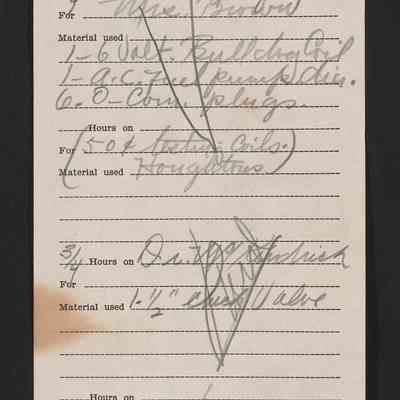 For Mrs. Brown
Material used
1-6 Volt. Bulldog Coil
1-A.C. fuel pump dia.
6. O-Com. plugs.
Hours on
For (50¢ testing Coils.)
Material used Houghtons
3/4 Hours on Dr. McKendrick
For
Material used 1-½" check Valve
Hours on